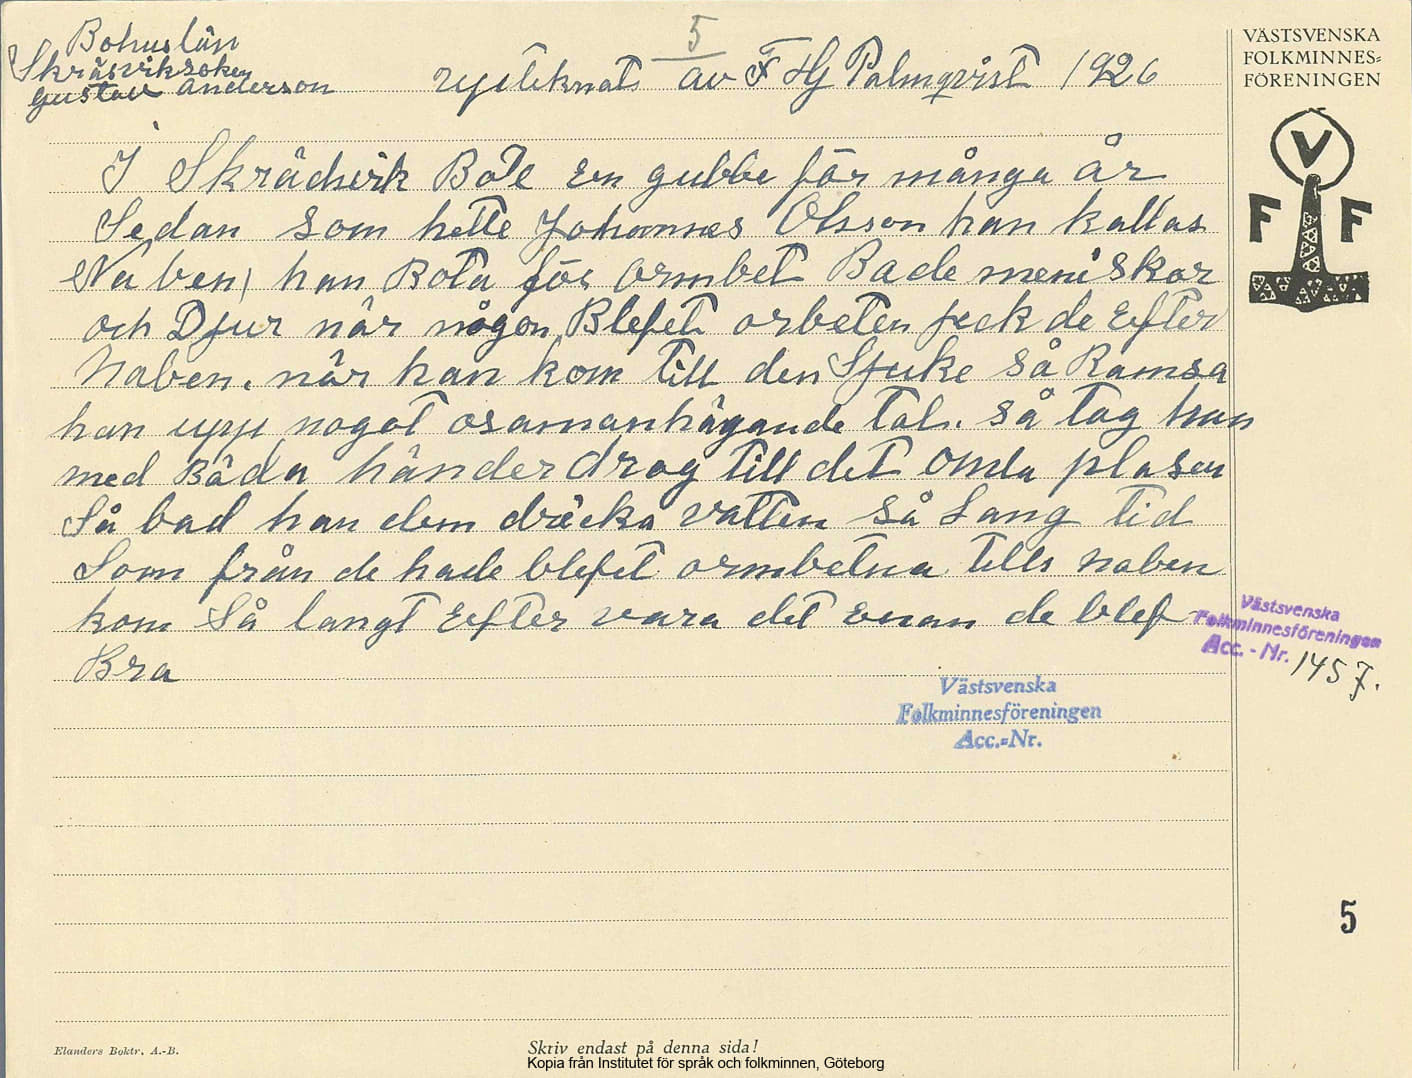 5
Bohuslän
Skräsviksoken
Gustav Anderson
av F Hj Palmqvist 1926
VÄSTSVENSKA
FOLKMINNES=
FÖRENINGEN
V
F F
I Skrädsvik Bode En gubbe för många år
Sedan som hette Johannes Olsson han kallas
Naben, han Bota för ormbet Bade meniskor
och Djur når någon Blefet orbeten feck de Efter
Naben. når han kom till den Sjuke så Ramsa
han upp nogot osamanhägande tal. så tog han
med Båda händer drog till det onda plasen
Så bad han dem dricka vatten så Lang tid
Som från de hade blefet ormbetna tells naben
kom Så langt Efter vara det enan de blef
Bra
Västsvenska
Folkminnesföreningen
Acc. - Nr. 1457.
Västsvenska
Folkminnesföreningen
Acc.=Nr.
5
Elanders Boktr. A.-B.
Skriv endast på denna sida!
Kopia från Institutet för språk och folkminnen, Göteborg